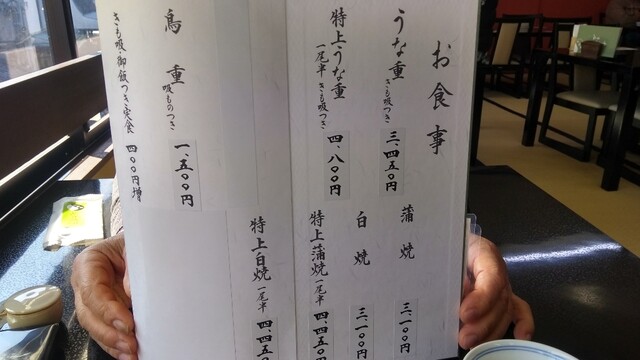 お食事
うな重 きも吸つき 三、四五〇円
特上うな重 一尾半 きも吸つき 四、八〇〇円
鳥重 吸ものつき 一、五〇〇円
きも吸・御飯つき定食 四〇〇円増
蒲焼 三、一〇〇円
白焼 三、一〇〇円
特上蒲焼 一尾半 四、四五〇円
特上白焼 一尾半 四、四五〇